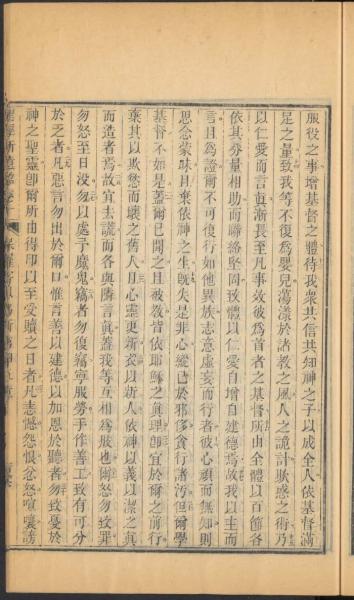 服役之事增基督之體待我衆共信共知神之子以成全人依基督滿
足之量致我等不復爲嬰兒蕩漾於諸教之風人之詭計欺惑之術乃
以仁愛而言眞漸長至凡事效彼爲首者之基督所由全體以百節各
依其分量相助而聯絡堅固致體以仁愛自增自建德焉故我以主而
言且爲證爾不可復行如他異族志意虛妄而行者彼心頑而無知則
思念蒙昧且棄依神之生旣失是非心縱己於邪侈貪行諸汚但爾學
基督不如是蓋爾已聞之且被敎皆依耶穌之眞理卽宜於爾之前行
棄其以欺慾而壞之舊人且心靈更新衣以新人依神以義以潔之眞
而造者焉故宜去謊而各與隣言眞蓋我等互相爲肢也爾怒勿致罪
勿怒至日沒勿以處子魔鬼竊者勿復竊寧服勞手作善工致有可分
於乏者凡惡言勿出於爾口惟言善以建德以加恩於聽者勿致憂於
神之聖靈卽爾所由得印以至受贖之日者凡志憾怨恨忿怒喧嚷謗